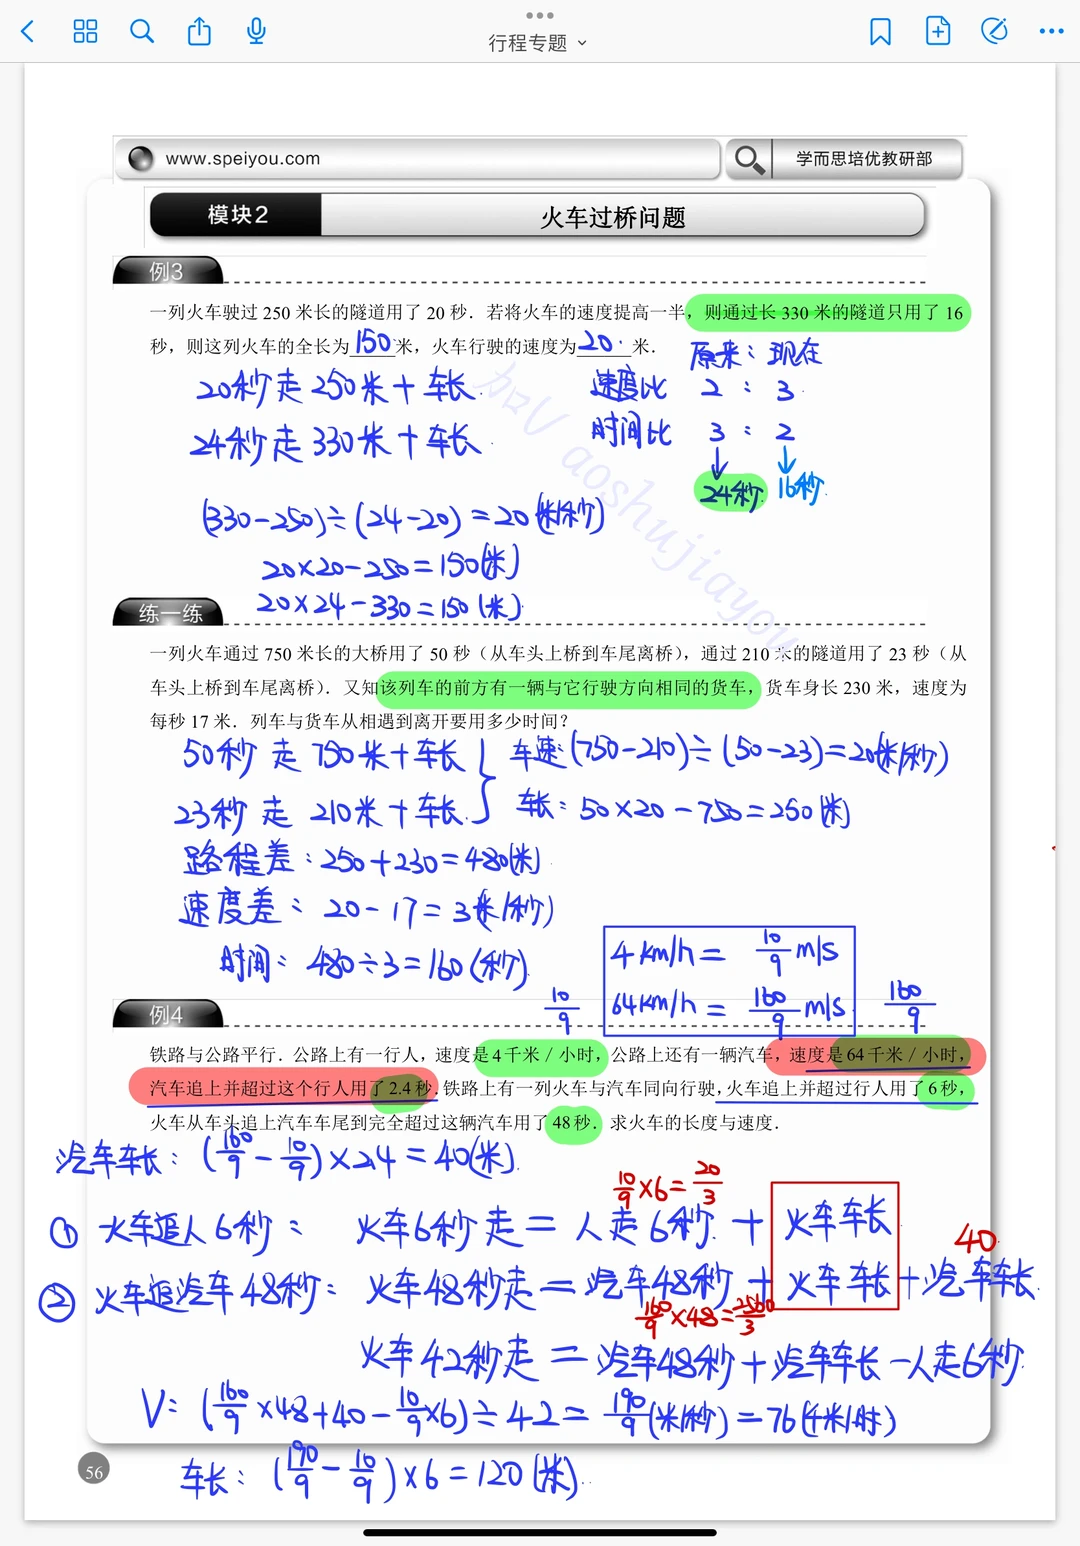 行程专题
www.speiyou.com 学而思培优教研部
模块2 火车过桥问题
例3
一列火车驶过 250 米长的隧道用了 20 秒．若将火车的速度提高一半，则通过长 330 米的隧道只用了 16
秒，则这列火车的全长为150米，火车行驶的速度为20米．
原来：现在
20秒走250米＋车长 速度比 2 : 3
24秒走330米＋车长 时间比 3 : 2
24秒 16秒
(330-250)÷(24-20)=20(米/秒)
20×20-250=150(米)
20×24-330=150(米)
加V aoshujiayou
练一练
一列火车通过 750 米长的大桥用了 50 秒（从车头上桥到车尾离桥），通过 210 米的隧道用了 23 秒（从
车头上桥到车尾离桥）．又知该列车的前方有一辆与它行驶方向相同的货车，货车身长 230 米，速度为
每秒 17 米．列车与货车从相遇到离开要用多少时间？
50秒走750米＋车长 车速:(750-210)÷(50-23)=20(米/秒)
23秒走210米＋车长 车长：50×20-750=250(米)
路程差：250+230=480(米)
速度差：20-17=3(米/秒)
时间：480÷3=160(秒)
4km/h=10/9 m/s
10/9 64km/h=160/9 m/s 160/9
例4
铁路与公路平行．公路上有一行人，速度是 4 千米／小时，公路上还有一辆汽车，速度是 64 千米／小时，
汽车追上并超过这个行人用了 2.4 秒．铁路上有一列火车与汽车同向行驶，火车追上并超过行人用了 6 秒，
火车从车头追上汽车车尾到完全超过这辆汽车用了 48 秒．求火车的长度与速度．
汽车车长：(160/9-10/9)×2.4=40(米)
10/9×6=20/3
① 火车追人6秒： 火车6秒走=人走6秒＋火车车长
40
② 火车追汽车48秒：火车48秒走=汽车48秒＋火车车长＋汽车车长
160/9×48=2560/3
火车42秒走=汽车48秒＋汽车车长-人走6秒
V：(160/9×48+40-10/9×6)÷42=190/9(米/秒)=76(千米/时)
车长：(190/9-10/9)×6=120(米)
56